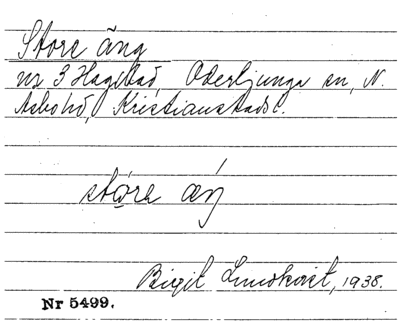 Store äng
nr 3 Hagstad, Oderljunga sn, N.
Åsbohd, Kristianstads l.
störa äŋ
Birgit Lundkvist, 1938.
Nr 5499.